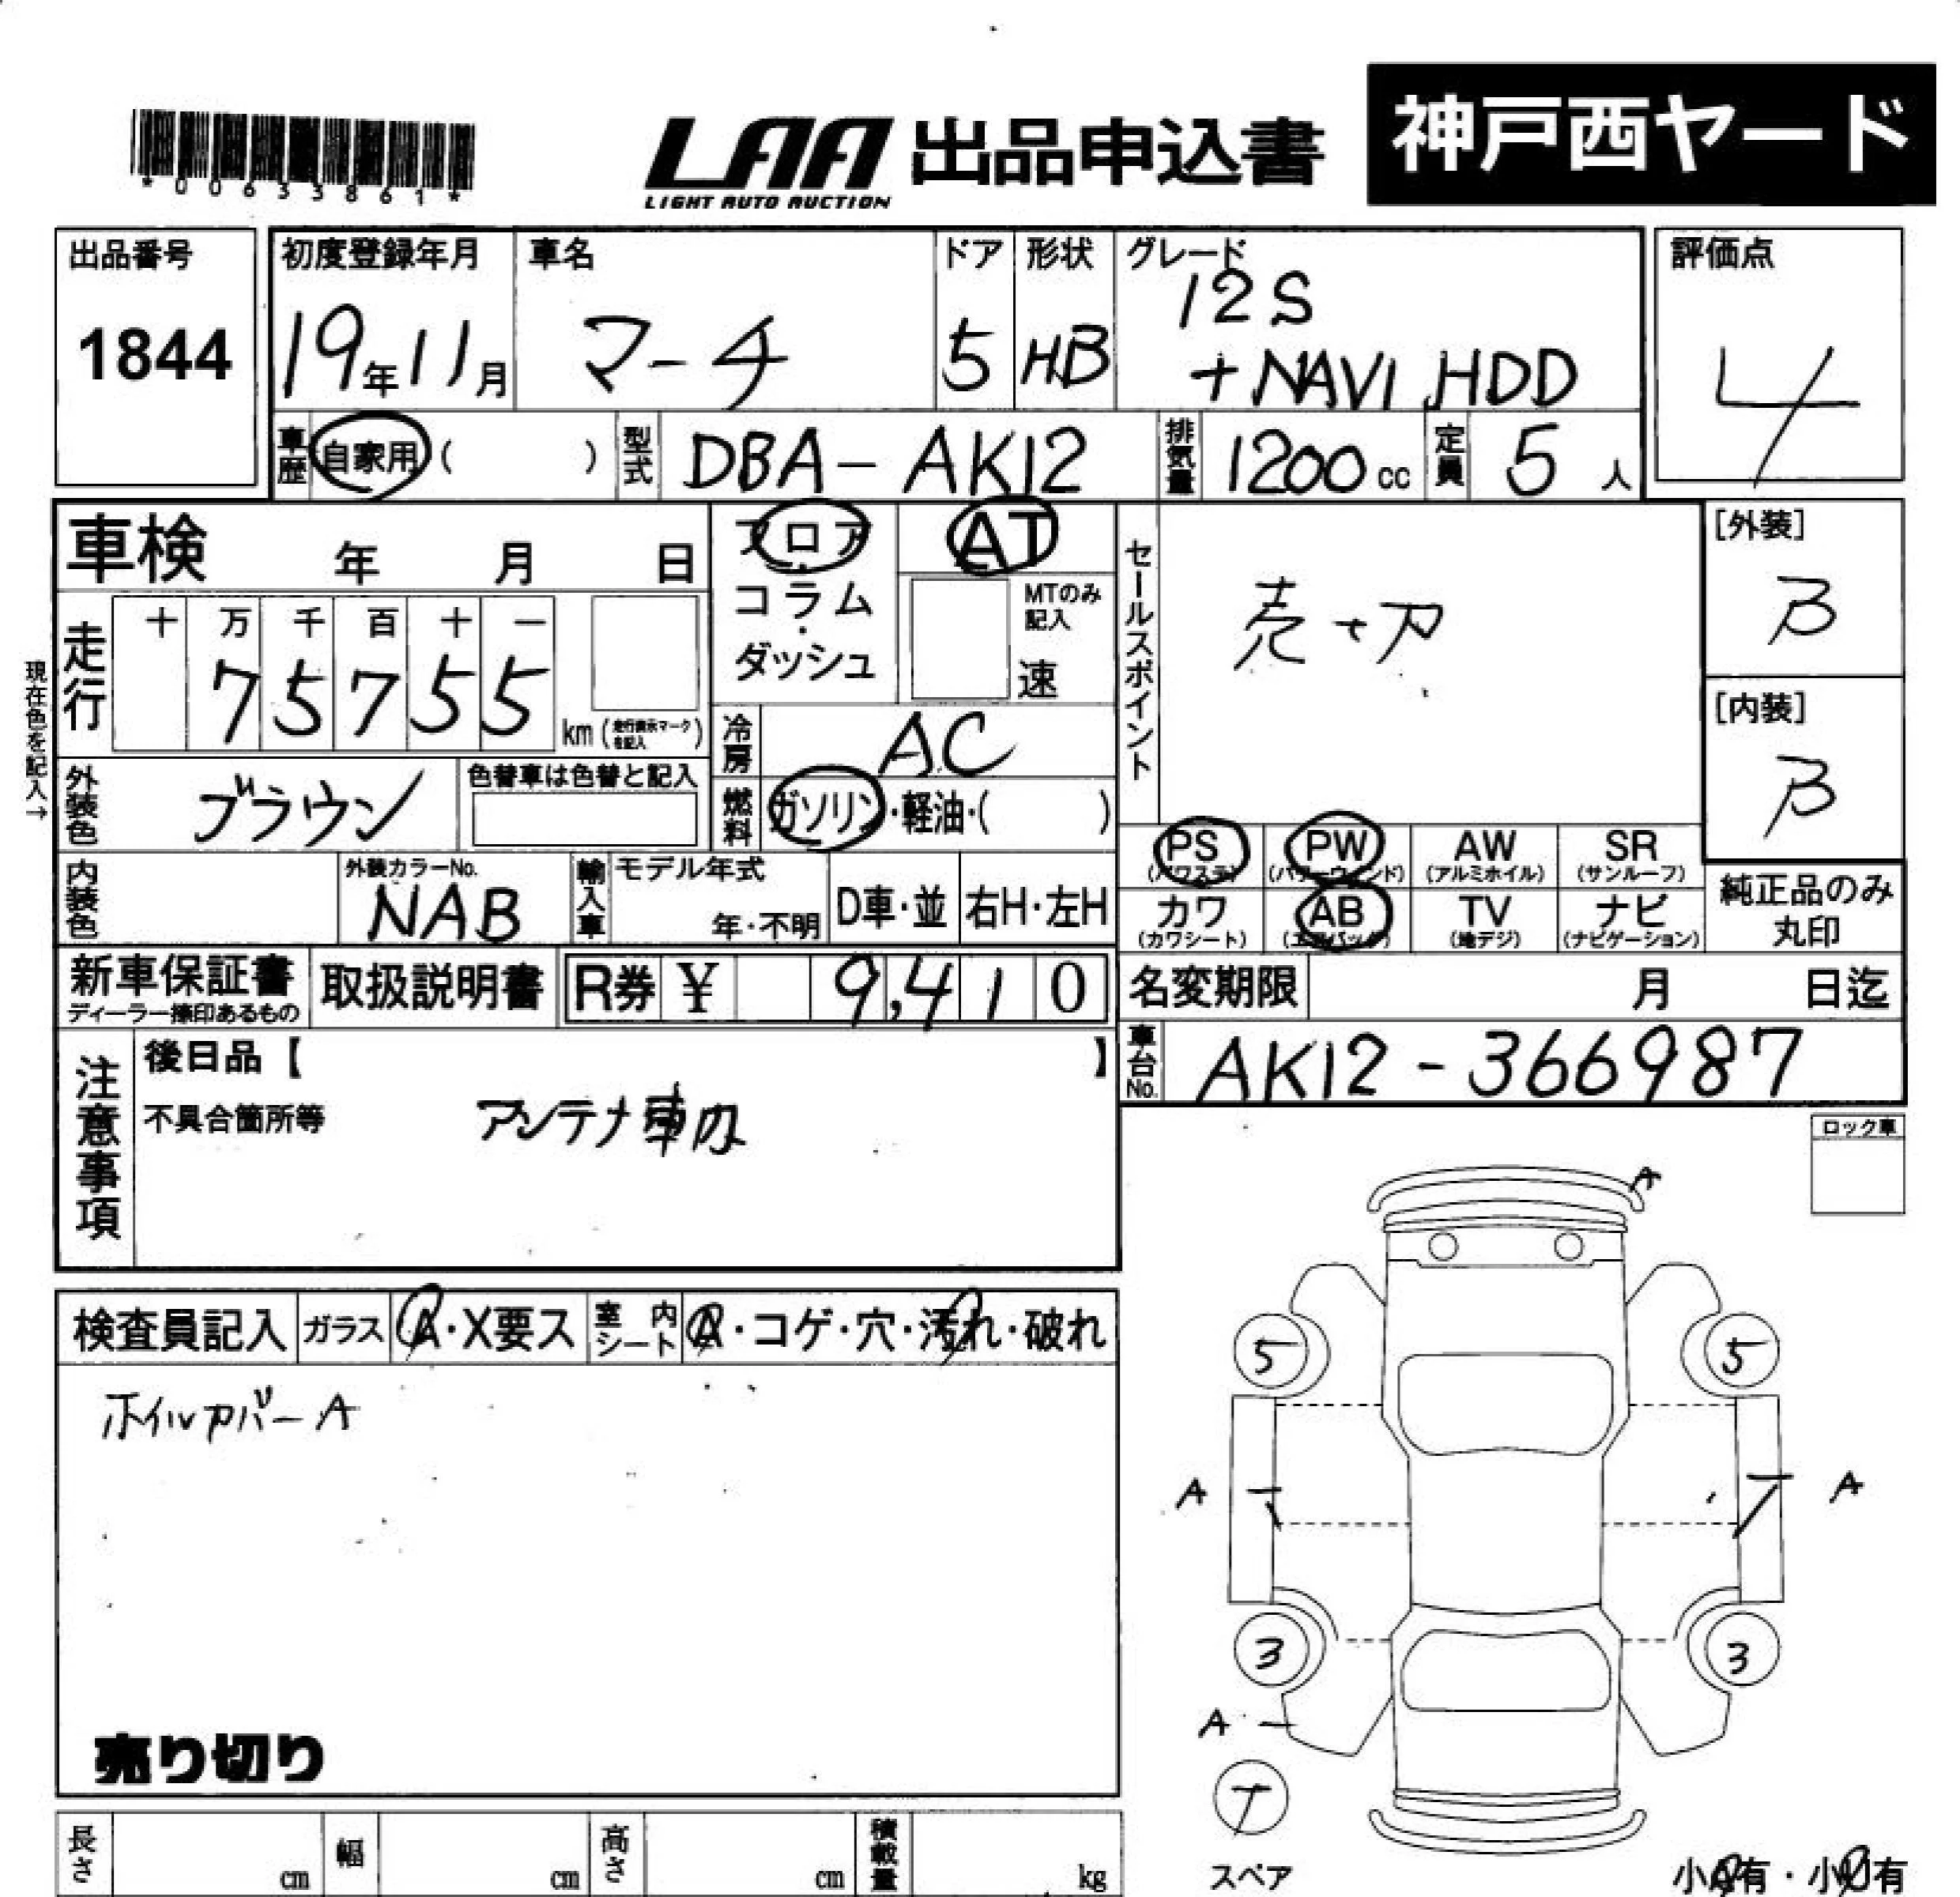 *00633861*
LAA 出品申込書 神戸西ヤード
LIGHT AUTO AUCTION
出品番号 初度登録年月 車名 ドア 形状 グレード 評価点
1844 19年11月 マーチ 5 HB 12S
+NAVI HDD 4
車歴 自家用( ) 型式 DBA-AK12 排気量 1200cc 定員 5人
車検 年 月 日 フロア・コラム・ダッシュ AT セールスポイント [外装]
MTのみ記入
速
売切 B
走行 十 万 千 百 十 一
75755 km(走行表示マークを記入)
現在色を記入→
[内装]
B
冷房 AC
外装色 ブラウン 色替車は色替と記入 燃料 ガソリン・軽油・( )
PS(パワステ) PW(パワーウィンド) AW(アルミホイル) SR(サンルーフ)
内装色 外装カラーNo. NAB 輸入車 モデル年式 年・不明 D車・並 右H・左H
カワ(カワシート) AB(エアバック) TV(地デジ) ナビ(ナビゲーション)
純正品のみ
丸印
新車保証書 取扱説明書 R券 ¥ 9,410 名変期限 月 日迄
ディーラー捺印あるもの
注意事項 後日品【 】 車台No. AK12-366987
不具合箇所等 アンテナ車内
ロック車
A
検査員記入 ガラス A・X要ス 室内シート A・コゲ・穴・汚れ・破れ
5 5
ホイルカバーA
A A
3 3
A
売り切り
T
スペア
小A有・小U有
長さ cm 幅 cm 高さ cm 積載量 kg